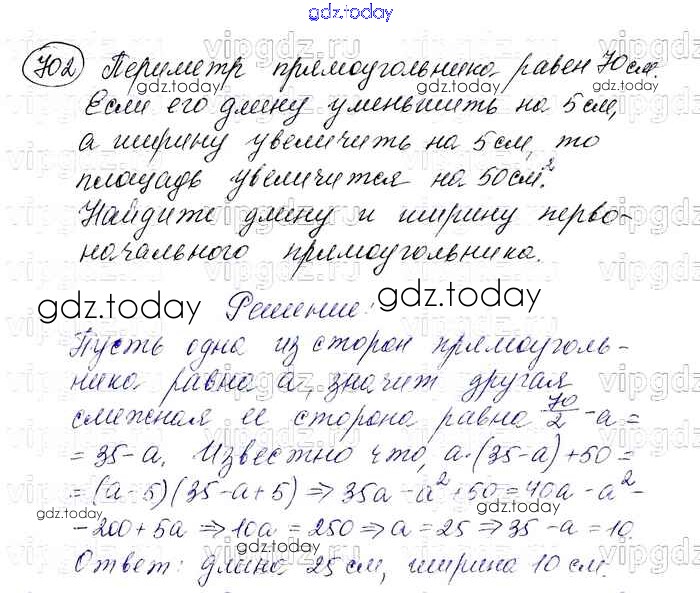 gdz.today
702 Периметр прямоугольника равен 70 см.
Если его длину уменьшить на 5 см,
а ширину увеличить на 5 см, то
площадь увеличится на 50 см².
Найдите длину и ширину перво-
начального прямоугольника.
gdz.today Решение: gdz.today
Пусть одна из сторон прямоуголь-
ника равна a, значит другая
смежная ее сторона равна 70/2 - a =
= 35 - a. Известно что, a · (35 - a) + 50 =
= (a - 5)(35 - a + 5) ⇒ 35a - a² + 50 = 40a - a² -
- 200 + 5a ⇒ 10a = 250 ⇒ a = 25 ⇒ 35 - a = 10.
Ответ: длина 25 см, ширина 10 см.